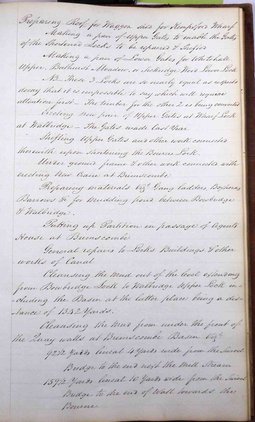 Preparing Roof for Waggon and for Kempsfords Wharf
Making a pair of Upper Gates to match the Locks
of the Shortened Locks to be repaired &
Making a pair of Lower Gates for Whitehall
Upper, Bathurst Meadow, or Ickeridge Wood Lower Lock
NB. These 3 Locks are nearly equal as regards
decay that it is impossible to say which will require
attention first — The timber for the other 2 is being converted
Erecting new pair of Upper Gates at Wharf Lock
at Wallbridge — The Gates made last Year
Shifting Upper Gates and other work connected
therewith upon shortening the Bowres Lock.
Under ground frame & other work connected with
erecting New Crane at Brimscombe
Preparing materials Viz. Gang ladders Boxheads
Barrows &c for Mudding pond between Bowbridge
& Wallbridge.
Putting up Partition in passage of Agents
House at Brimscombe
General repairs to Locks Buildings & other
works of Canal
Cleansing the Mud out of the Canal extending
from Bowbridge Lock to Wallbridge Upper Lock in-
cluding the Basin at the latter place being a dis-
tance of 1342 Yards.
Cleansing the Mud from under the front of
the Quay walls at Brimscombe Basin Viz.
92½ Yards lineal 4 Yards wide from the Swivel
Bridge to the end next the Mill Stream
159½ Yards lineal 10 Yards wide from the Swivel
Bridge to the end of Wall towards the
Bourne